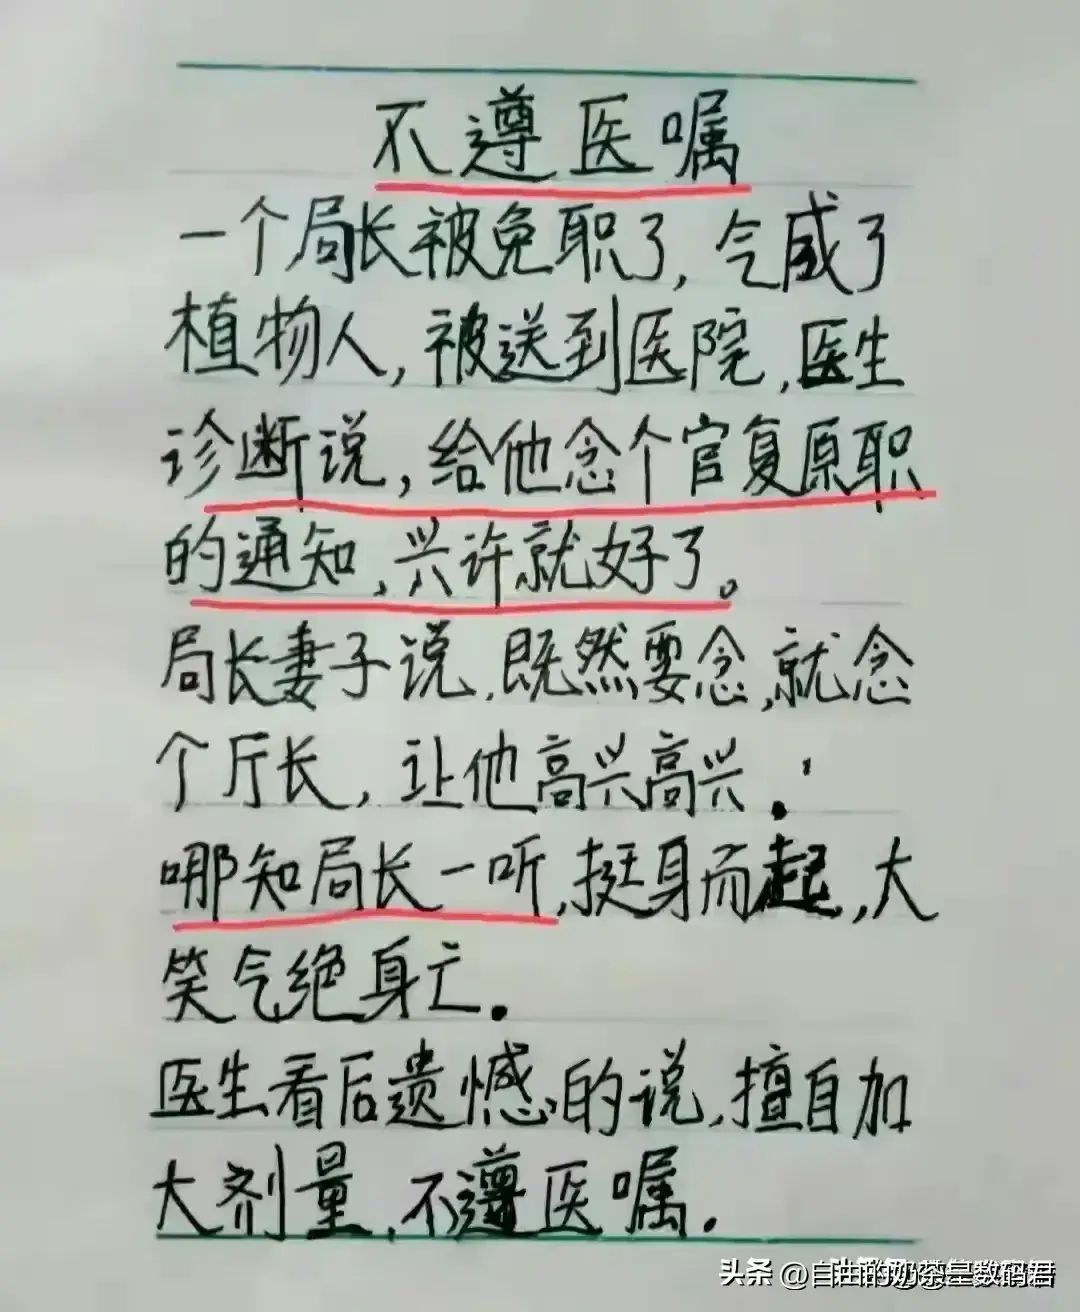 不遵医嘱
一个局长被免职了,气成了
植物人,被送到医院,医生
诊断说,给他念个官复原职
的通知,兴许就好了。
局长妻子说,既然要念,就念
个厅长,让他高兴高兴.
哪知局长一听,挺身而起,大
笑气绝身亡.
医生看后遗憾的说,擅自加
大剂量,不遵医嘱.
头条 @自由的奶茶星数码君